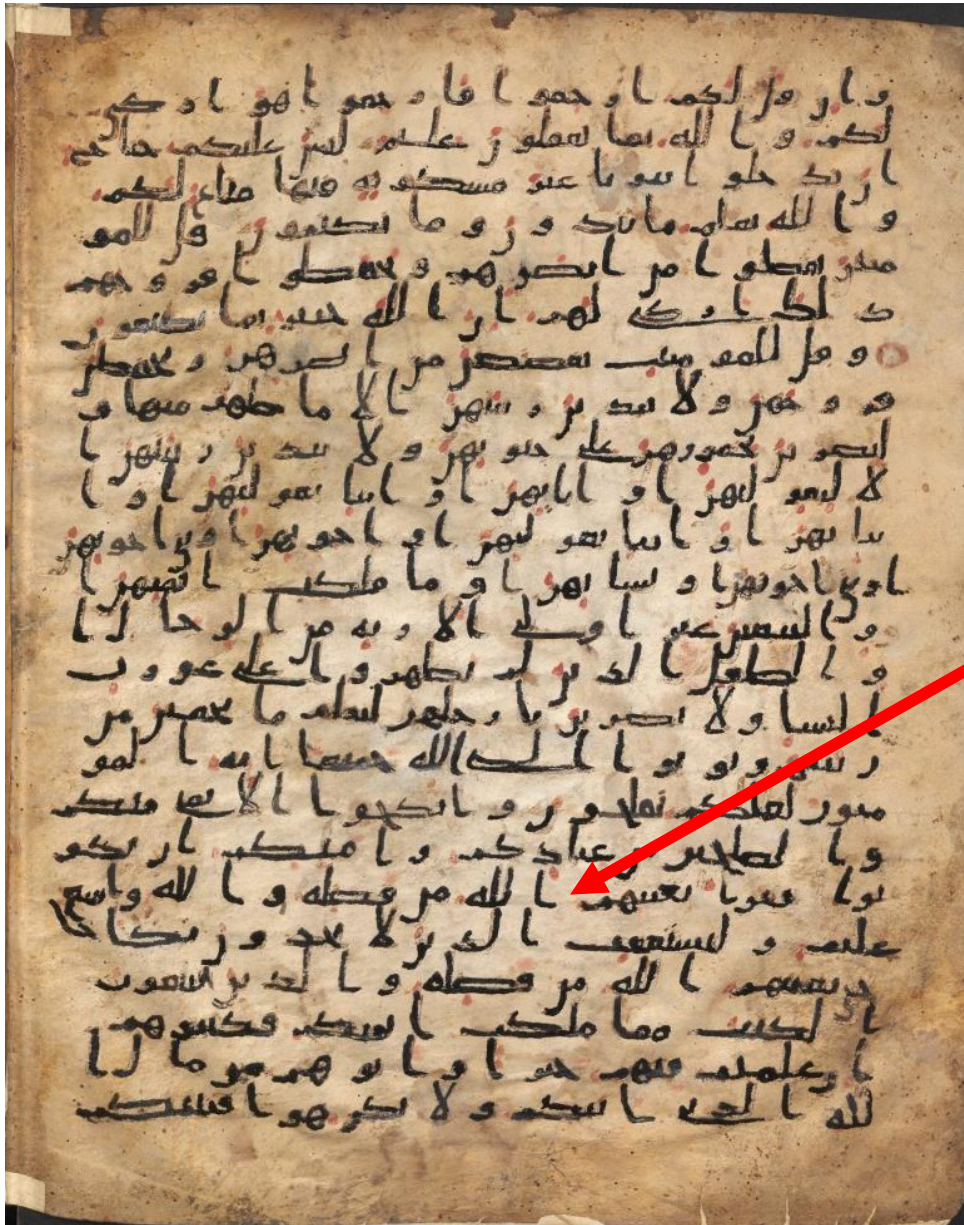 وان قيل لكم ارجعوا فارجعوا هو ازكى
لكم والله بما تعملون عليم ليس عليكم جناح
ان تدخلوا بيوتا غير مسكونة فيها متاع لكم
والله يعلم ما تبدون وما تكتمون قل للمو
منين يغضوا من ابصرهم ويحفظوا فروجهم
ذلك ازكى لهم ان الله خبير بما يصنعون
وقل للمومنت يغضضن من ابصرهن ويحفظن
فروجهن ولا يبدين زينتهن الا ما ظهر منها و
ليضربن بخمرهن على جيوبهن ولا يبدين زينتهن ا
لا لبعولتهن او ابايهن او ابا بعولتهن او ا
بنايهن او ابنا بعولتهن او اخونهن او بنى اخونهن
او بنى اخوتهن او نسايهن او ما ملكت ايمنهن ا
و التبعين غير اولى الاربة من الرجال ا
و الطفل الذين لم يظهروا على عورت
النسا ولا يضربن بارجلهن ليعلم ما يخفين من
زينتهن وتوبوا الى الله جميعا ايه المو
منون لعلكم تفلحون وانكحوا الايمى منكم
والصلحين من عبادكم وامئكم ان يكو
نوا فقرا يغنيهم الله من فضله والله واسع
عليم وليستعفف الذين لا يجدون نكاحا
حتى يغنيهم الله من فضله والذين يبتغون
الكتب مما ملكت ايمنكم فكتبوهم
ان علمتم فيهم خيرا واتوهم من مال ا
لله الذى اتيكم ولا تكرهوا فتيتكم